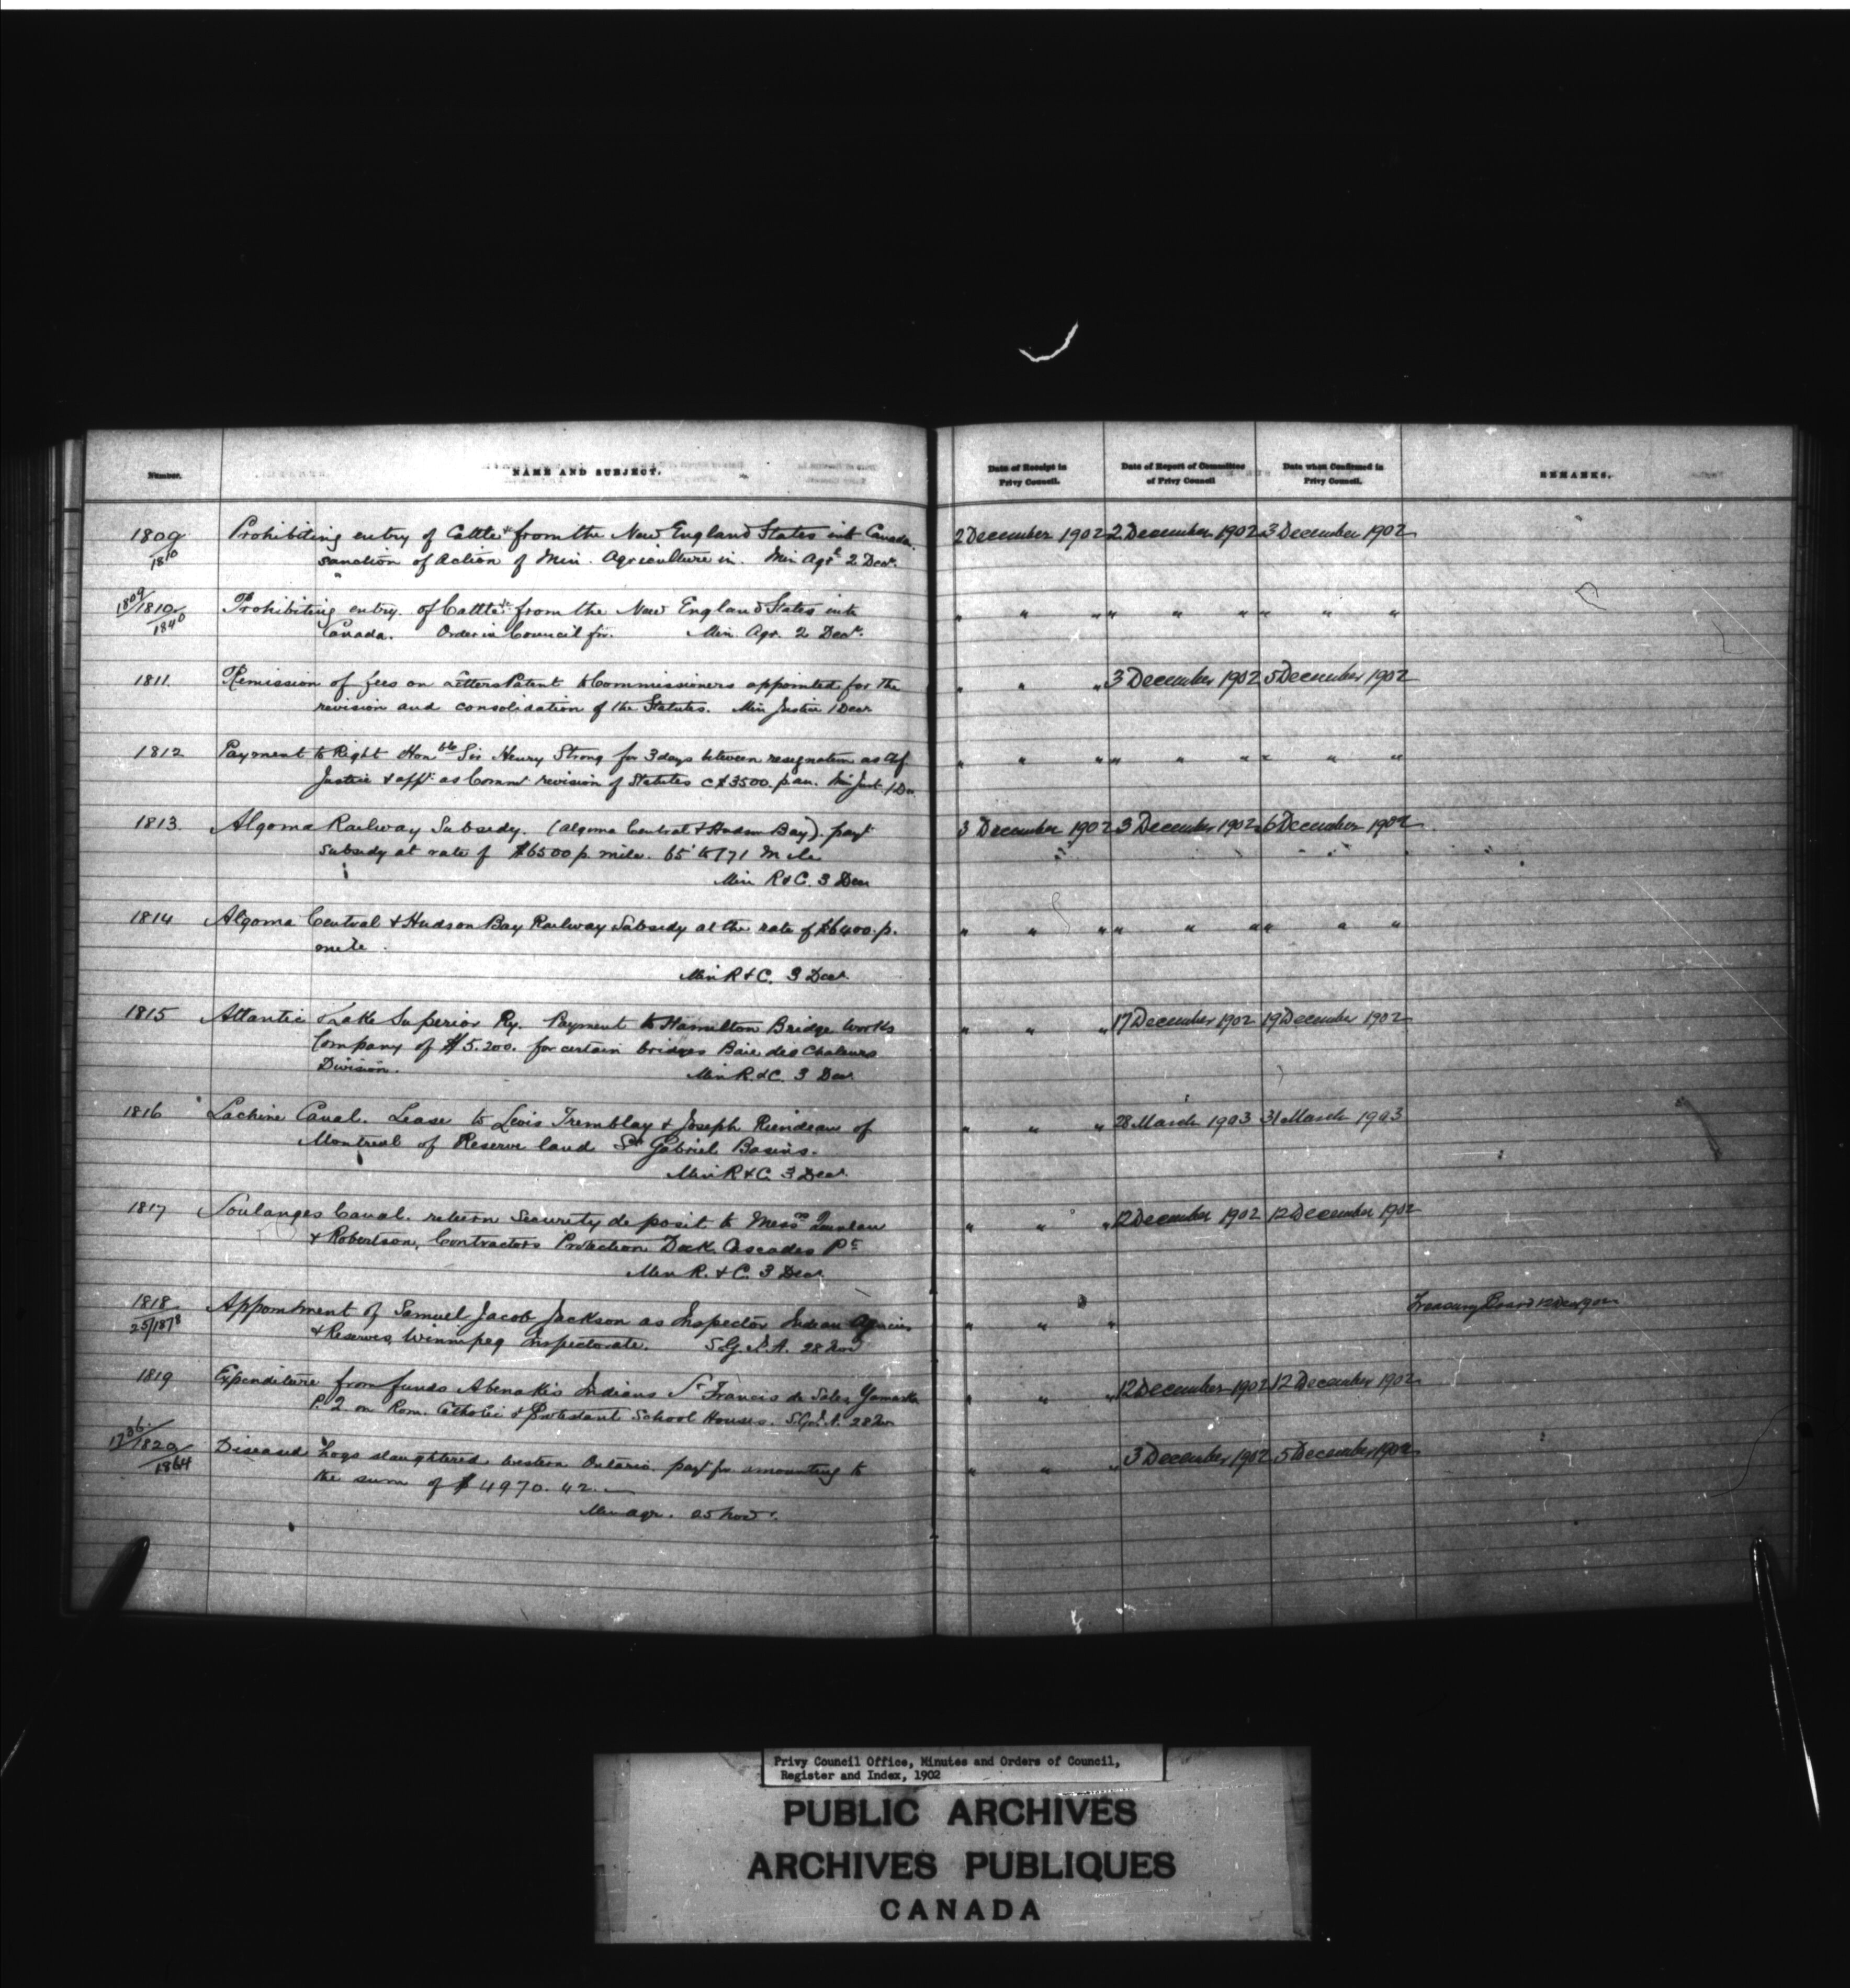 Number.
NAME AND SUBJECT.
Date of Receipt in Privy Council.
Date of Report of Committee of Privy Council
Date when Confirmed in Privy Council.
REMARKS.
1809 Prohibiting entry of Cattle &c from the New England States into Canada. 2 December 1902 2 December 1902 3 December 1902
1810 sanction of Action of Min. Agriculture in. Min Agre 2 Decr.
1809/1810 Prohibiting entry of Cattle &c from the New England States into " " " " " " " " "
1840 Canada. Order in Council for. Min. Agr. 2 Decr.
1811. Remission of fees on Letters Patent to Commissioners appointed for the " " " 3 December 1902 5 December 1902
revision and consolidation of the Statutes. Min Justice 1 Decr
1812 Payment to Right Honble Sir Henry Strong for 3 days between resignation as Chf " " " " " " " " "
Justice & appt. as Commr revision of Statutes @ $3500. p. an. Min Just. 1 Dec
1813. Algoma Railway Subsidy. (Algoma Central & Hudson Bay). payt 3 December 1902 3 December 1902 6 December 1902
subsidy at rate of $6500 p. mile. 65 to 171 Mile
Min R & C. 3 Decr
1814 Algoma Central & Hudson Bay Railway Subsidy at the rate of $6400. p. " " " " " " " " "
mile.
Min R & C. 3 Decr.
1815 Atlantic & Lake Superior Ry. Payment to Hamilton Bridge Works " " " 17 December 1902 19 December 1902
Company of $5.200. for certain bridges Baie des Chaleurs
Division. Min R. & C. 3 Decr
1816 Lachine Canal. Lease to Levis Tremblay & Joseph Riendeau of " " " 28 March 1903 31 March 1903
Montreal of Reserve land St Gabriel Basins.
Min R & C. 3 Decr.
1817 Soulanges Canal. return Security deposit to Messrs Quinlan " " " 12 December 1902 12 December 1902
& Robertson, Contractors Protection Dock Cascades Pt
Min R. & C. 3 Decr.
1818 Appointment of Samuel Jacob Jackson as Inspector Indian Agencies " " " Treasury Board 12 Decr 1902
25/1878 & Reserves, Winnipeg Inspectorate. S.G.I.A. 28 Nov
1819 Expenditure from funds Abenakis Indians St Francis de Sales, Yamaska " " " 12 December 1902 12 December 1902
P.Q. on Rom. Catholic & Protestant School Houses. S.G.I.A. 28 Nov
1736/1820 Diseased hogs slaughtered. Western Ontario. payt for amounting to " " " 3 December 1902 5 December 1902
1864 the sum of $4970.42.
Min agr. 25 Nov.
Privy Council Office, Minutes and Orders of Council,
Register and Index, 1902
PUBLIC ARCHIVES
ARCHIVES PUBLIQUES
CANADA